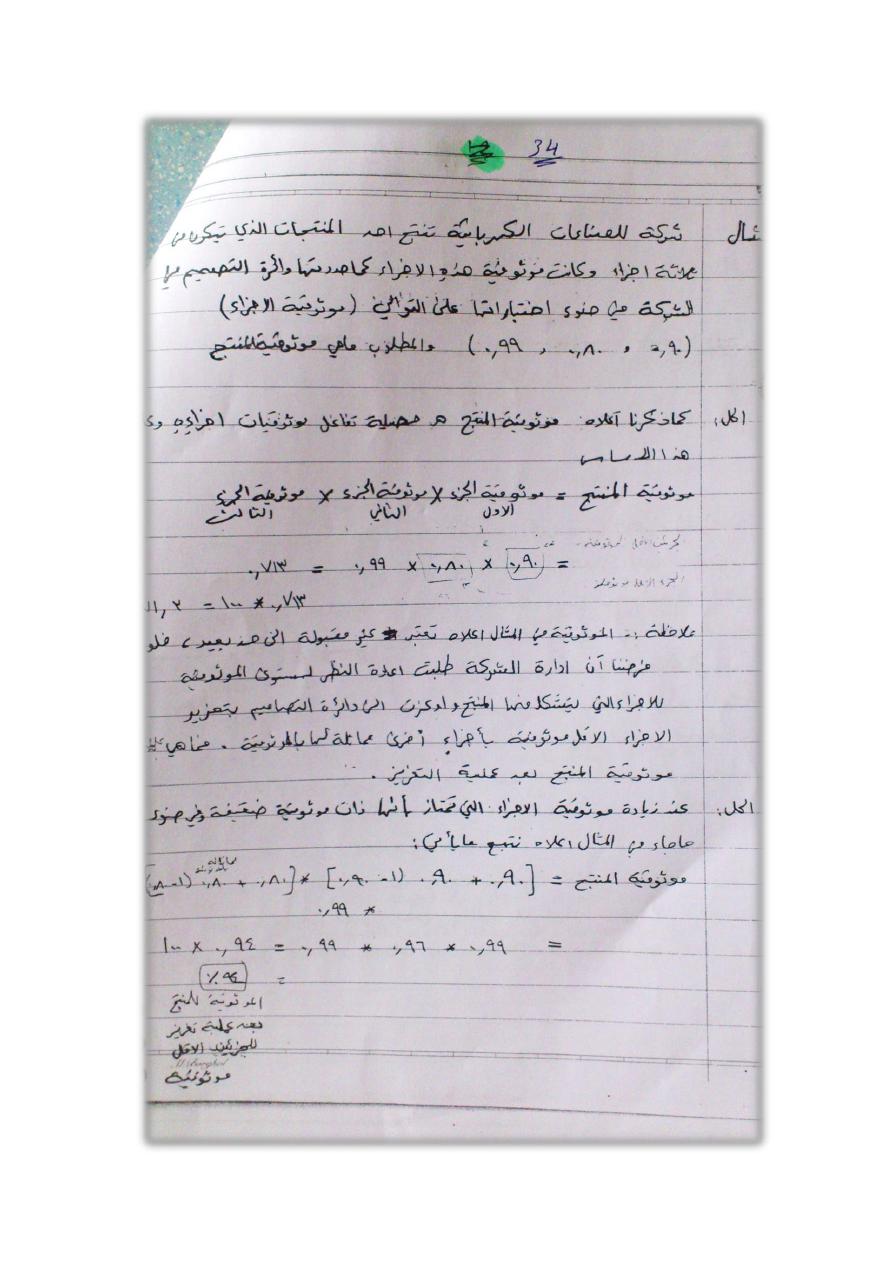 34
مثال شركة للصناعات الكهربائية تنتج احد المنتجات الذي تتكون من
ثلاثة اجزاء وكانت موثوقية هذه الاجزاء كما حددتها دائرة التصميم في
الشركة في ضوء اختباراتها على التوالي (موثوقية الاجزاء)
(٠,٩٠ ، ٠,٨٠ ، ٠,٩٩) والمطلوب ماهي موثوقية المنتج
الحل: كما ذكرنا اعلاه موثوقية المنتج هو حصيلة تفاعل موثوقيات اجزاءه
هذا الاساس
موثوقية المنتج = موثوقية الجزء الاول × موثوقية الجزء الثاني × موثوقية الجزء الثالث
= ٠,٩٠ × ٠,٨٠ × ٠,٩٩ = ٠,٧١٣
٠,٧١٣ * ١٠٠ =
ملاحظة :- الموثوقية في المثال اعلاه تعتبر غير مقبولة الى حد بعيد، فلو
فرضنا أن ادارة الشركة طلبت اعادة النظر لمستوى الموثوقية
للاجزاء التي يتشكل منها المنتج واوعزت الى دائرة التصاميم بتعزيز
الاجزاء الاقل موثوقية بأجزاء أخرى مماثلة لها بالموثوقية . فما هي
موثوقية المنتج بعد عملية التعزيز .
الحل: عند زيادة موثوقية الاجزاء التي تمتاز بأنها ذات موثوقية ضعيفة وفي ضوء
ماجاء في المثال اعلاه نتبع مايأتي:
موثوقية المنتج = [٠,٩٠ + ٠,٩٠ (١- ٠,٩٠)] * [٠,٨٠ + ٠,٨٠ (١-
* ٠,٩٩
= ٠,٩٩ * ٠,٩٦ * ٠,٩٩ = ٠,٩٤ × ١٠٠
= ٩٤٪
الموثوقية للمنتج
بعد عملية تعزيز
للجزئين الاقل
موثوقية